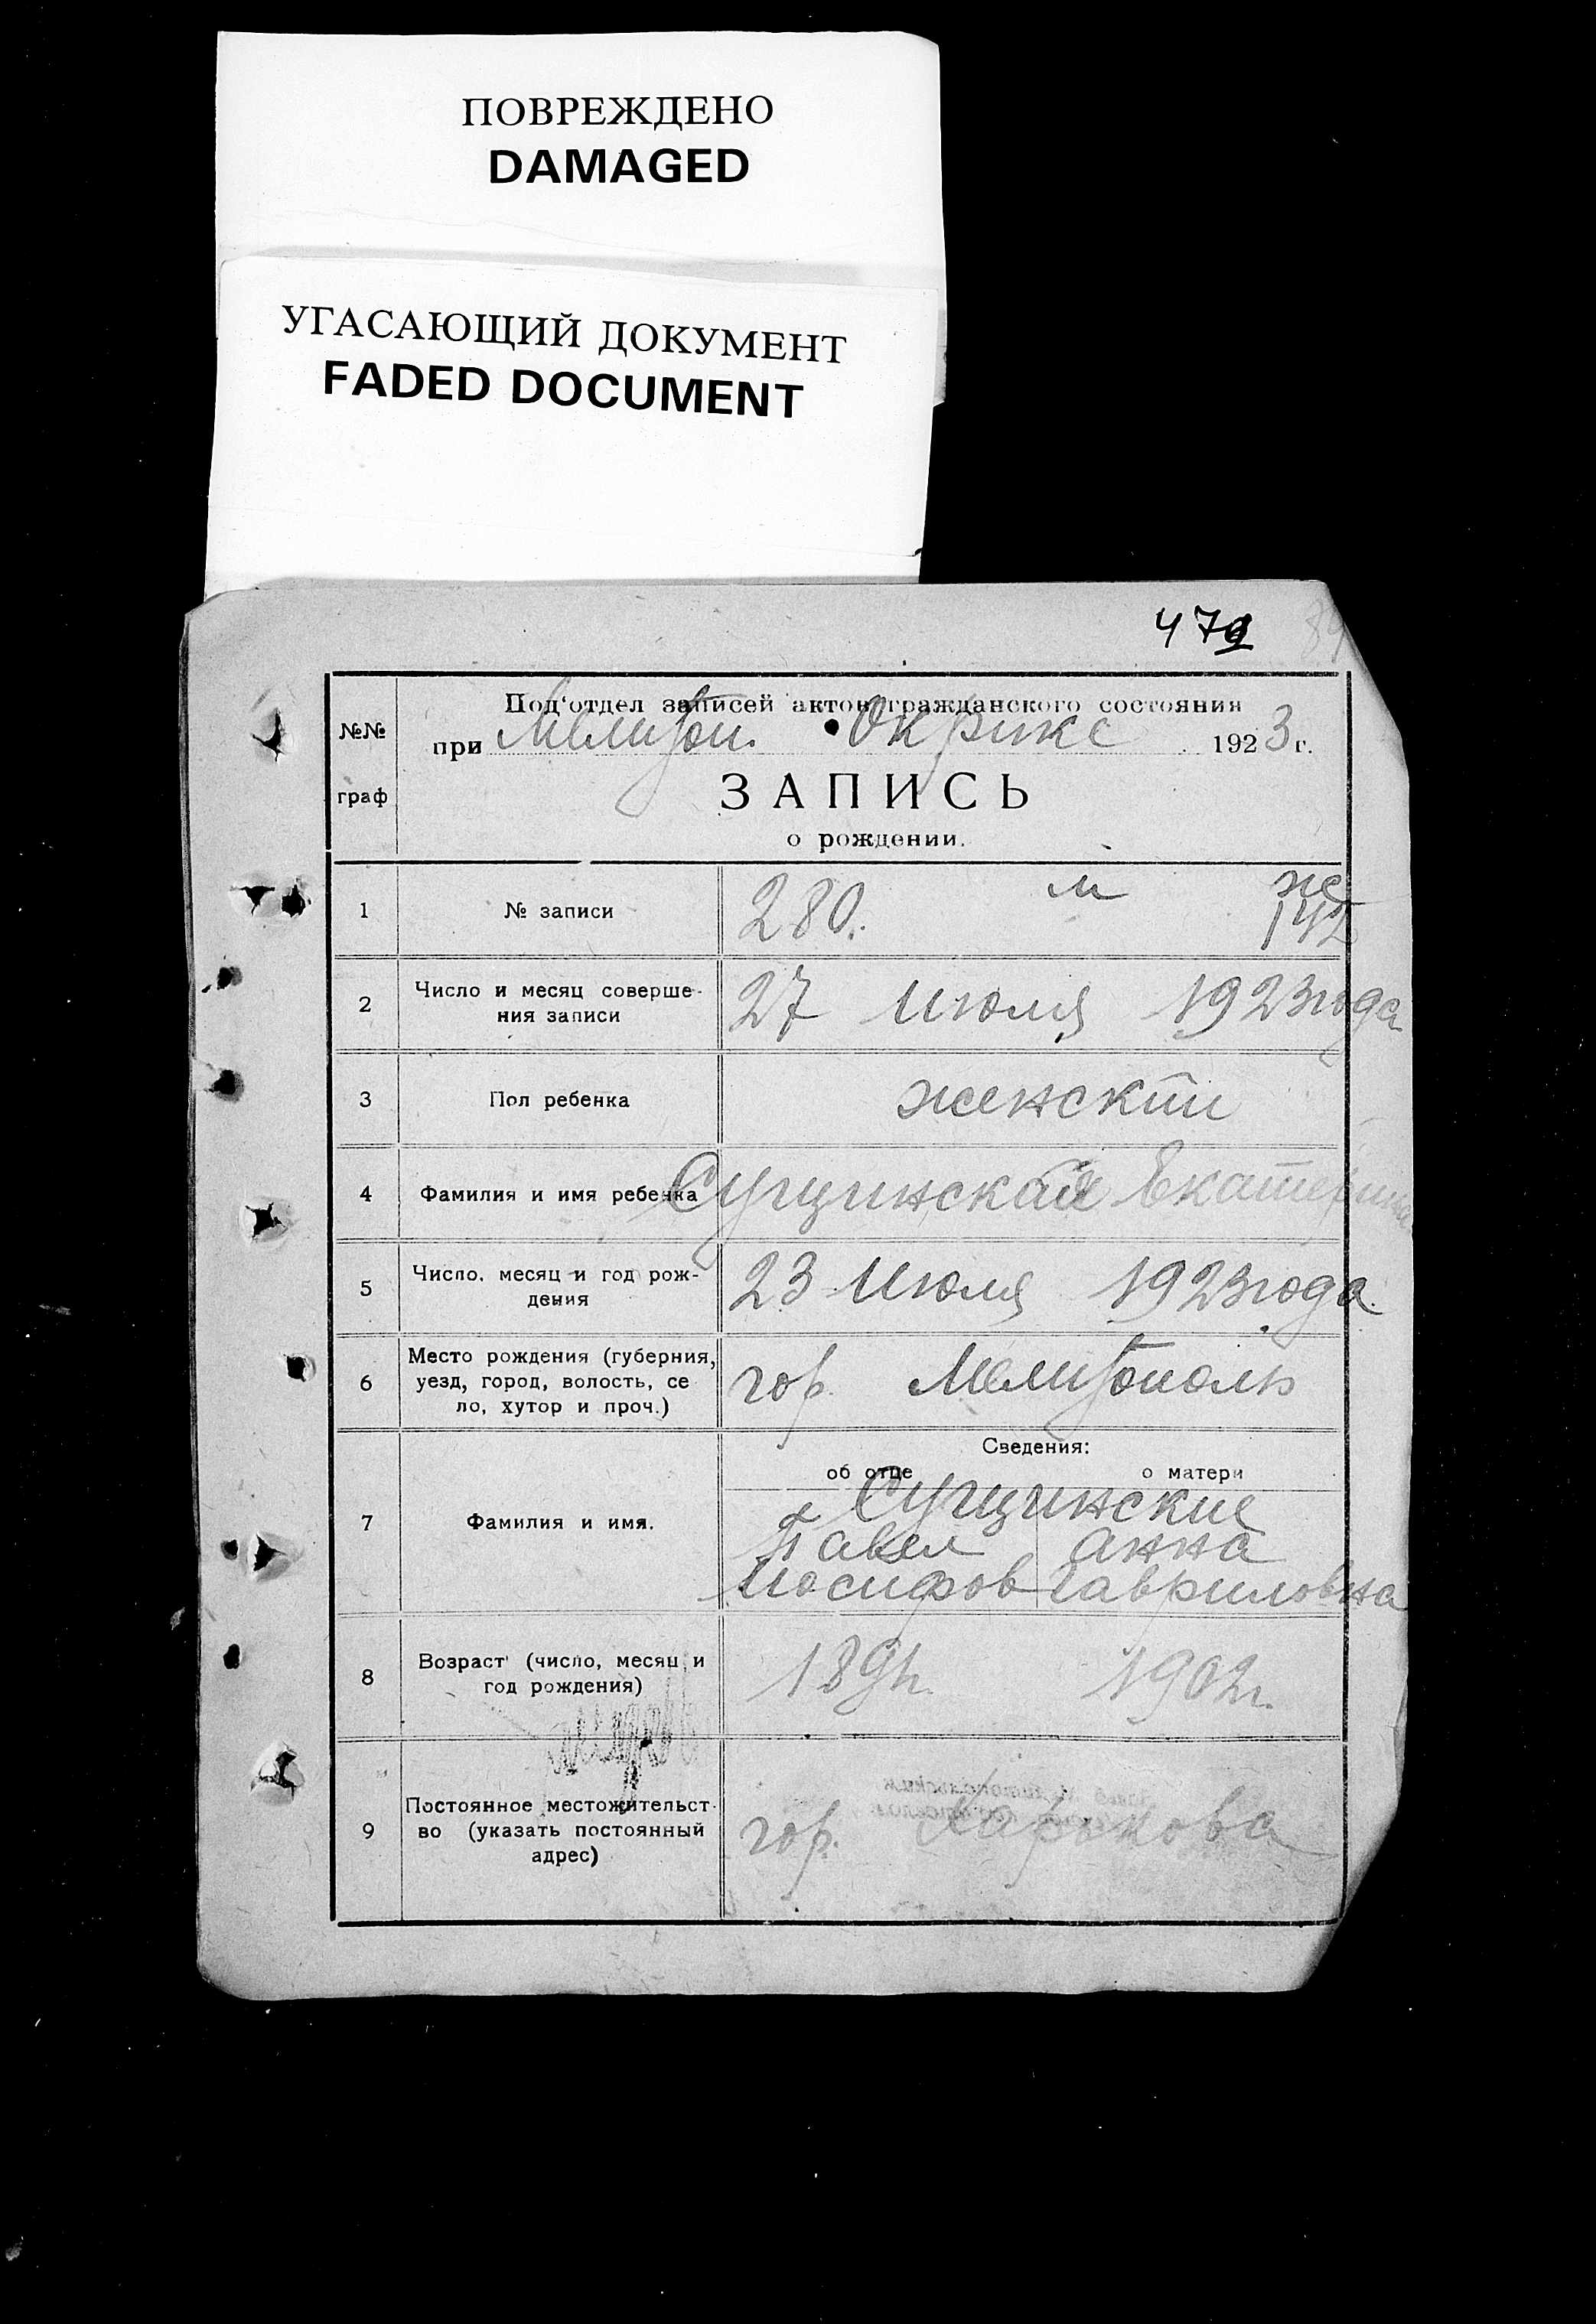 ПОВРЕЖДЕНО
DAMAGED
УГАСАЮЩИЙ ДОКУМЕНТ
FADED DOCUMENT
479
84
№№
граф
Под'отдел записей актов гражданского состояния
при Мелитоп. Окрике 1923 г.
ЗАПИСЬ
о рождении.
1 № записи 280. м же
142
2 Число и месяц соверше-
ния записи 27 Июля 1923 года
3 Пол ребенка женский
4 Фамилия и имя ребенка Сущинская Екатерина
5 Число. месяц и год рож-
дения 23 Июля 1923 года
6 Место рождения (губерния,
уезд, город, волость, се
ло, хутор и проч.) гор. Мелитополь
Сведения:
об отце о матери
7 Фамилия и имя. Сущинские
Павел Анна
Иосифов Гавриловна
8 Возраст (число, месяц и
год рождения) 1902г.
9 Постоянное местожительст
во (указать постоянный
адрес) гор. Харькова